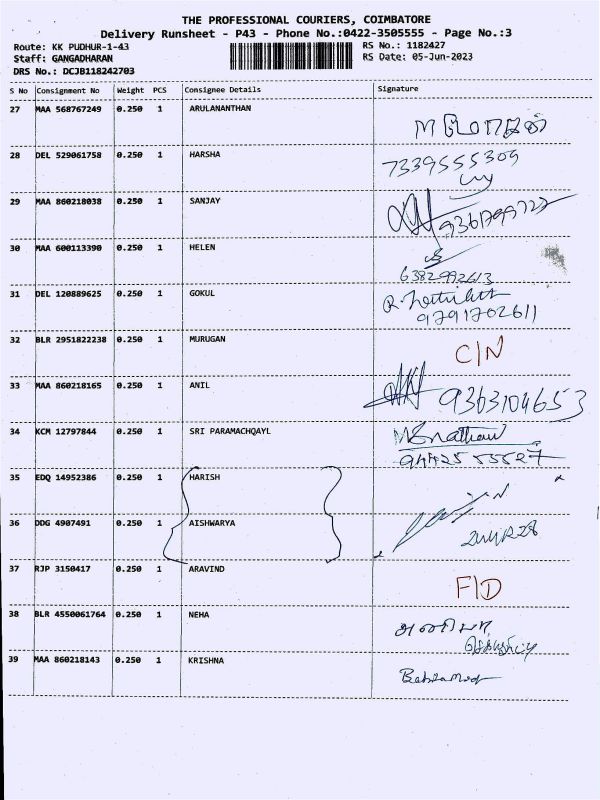 THE PROFESSIONAL COURIERS, COIMBATORE
Delivery Runsheet - P43 - Phone No.:0422-3505555 - Page No.:3
Route: KK PUDHUR-1-43 RS No.: 1182427
Staff: GANGADHARAN RS Date: 05-Jun-2023
DRS No.: DCJB118242703
S No Consignment No Weight PCS Consignee Details Signature
27 MAA 568767249 0.250 1 ARULANANTHAN
28 DEL 529061758 0.250 1 HARSHA
7339555309
29 MAA 860218038 0.250 1 SANJAY
30 MAA 600113390 0.250 1 HELEN
6382992613
31 DEL 120889625 0.250 1 GOKUL
9791702611
32 BLR 2951822238 0.250 1 MURUGAN
C/N
33 MAA 860218165 0.250 1 ANIL
9363104653
34 KCM 12797844 0.250 1 SRI PARAMACHQAYL
35 EDQ 14952386 0.250 1 HARISH
36 DDG 4907491 0.250 1 AISHWARYA
37 RJP 3150417 0.250 1 ARAVIND
F/D
38 BLR 4550061764 0.250 1 NEHA
39 MAA 860218143 0.250 1 KRISHNA